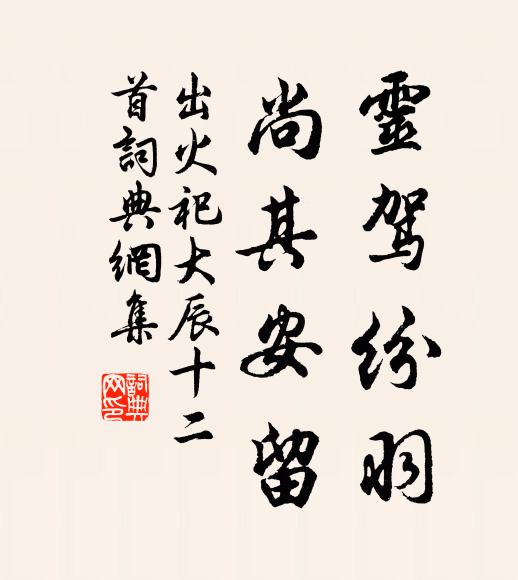 靈駕紛羽
尚其安留
出火祀大辰十二
首詞典網集
詞典
网印